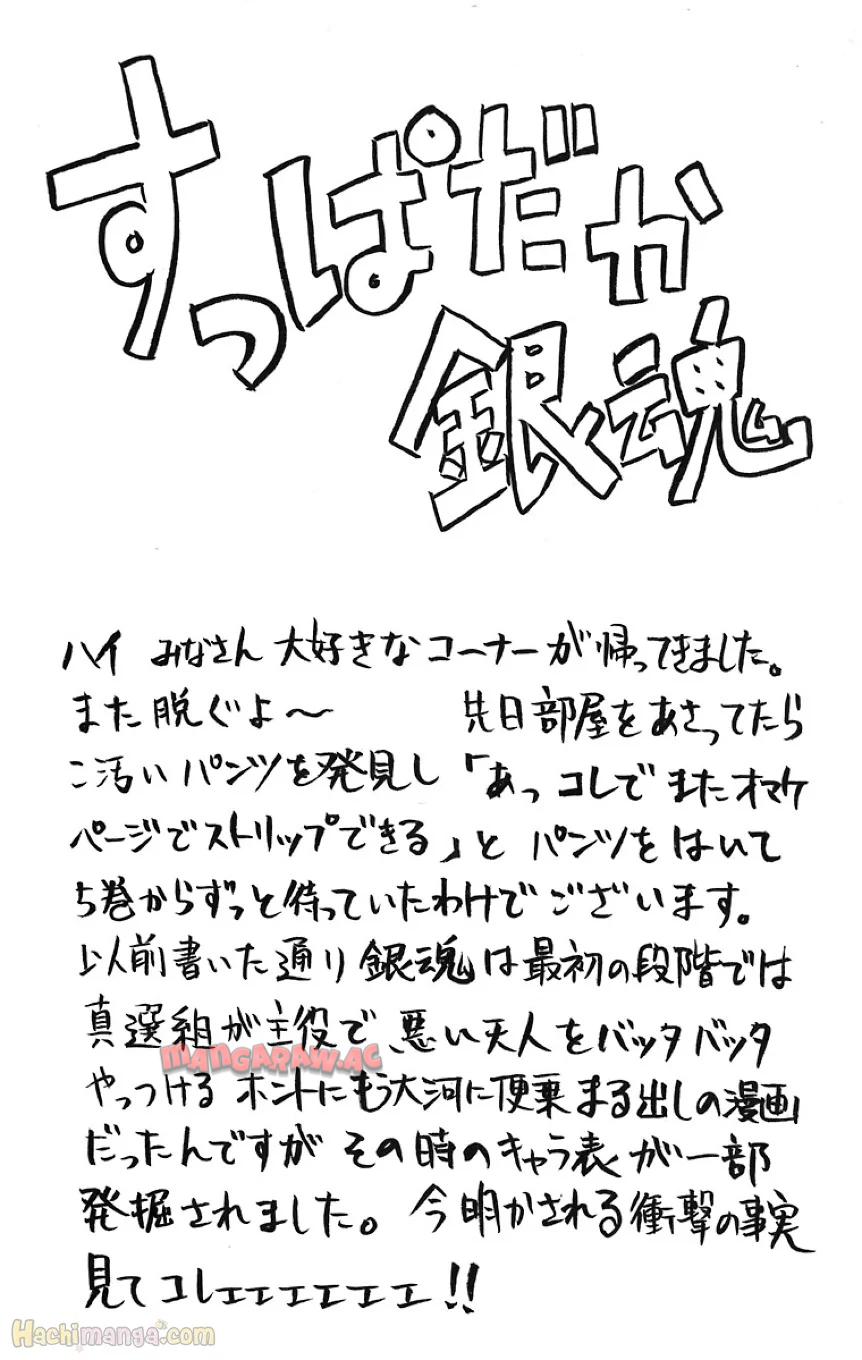 すっぱだか
銀魂
ハイ みなさん 大好きなコーナーが帰ってきました。
また脱ぐよ〜 先日部屋をあさってたら
こ汚いパンツを発見し「あっ コレでまたオマケ
ページでストリップできる」と パンツをはいて
5巻からずっと待っていたわけでございます。
以前書いた通り銀魂は最初の段階では
真選組が主役で悪い天人をバッタバッタ
MANGARAW.AC
やっつける ホントにもう大河に便乗まる出しの漫画
だったんですが その時のキャラ表が一部
発掘されました。今明かされる衝撃の事実
見てコレェェェェェェ!!
Hachimanga.com